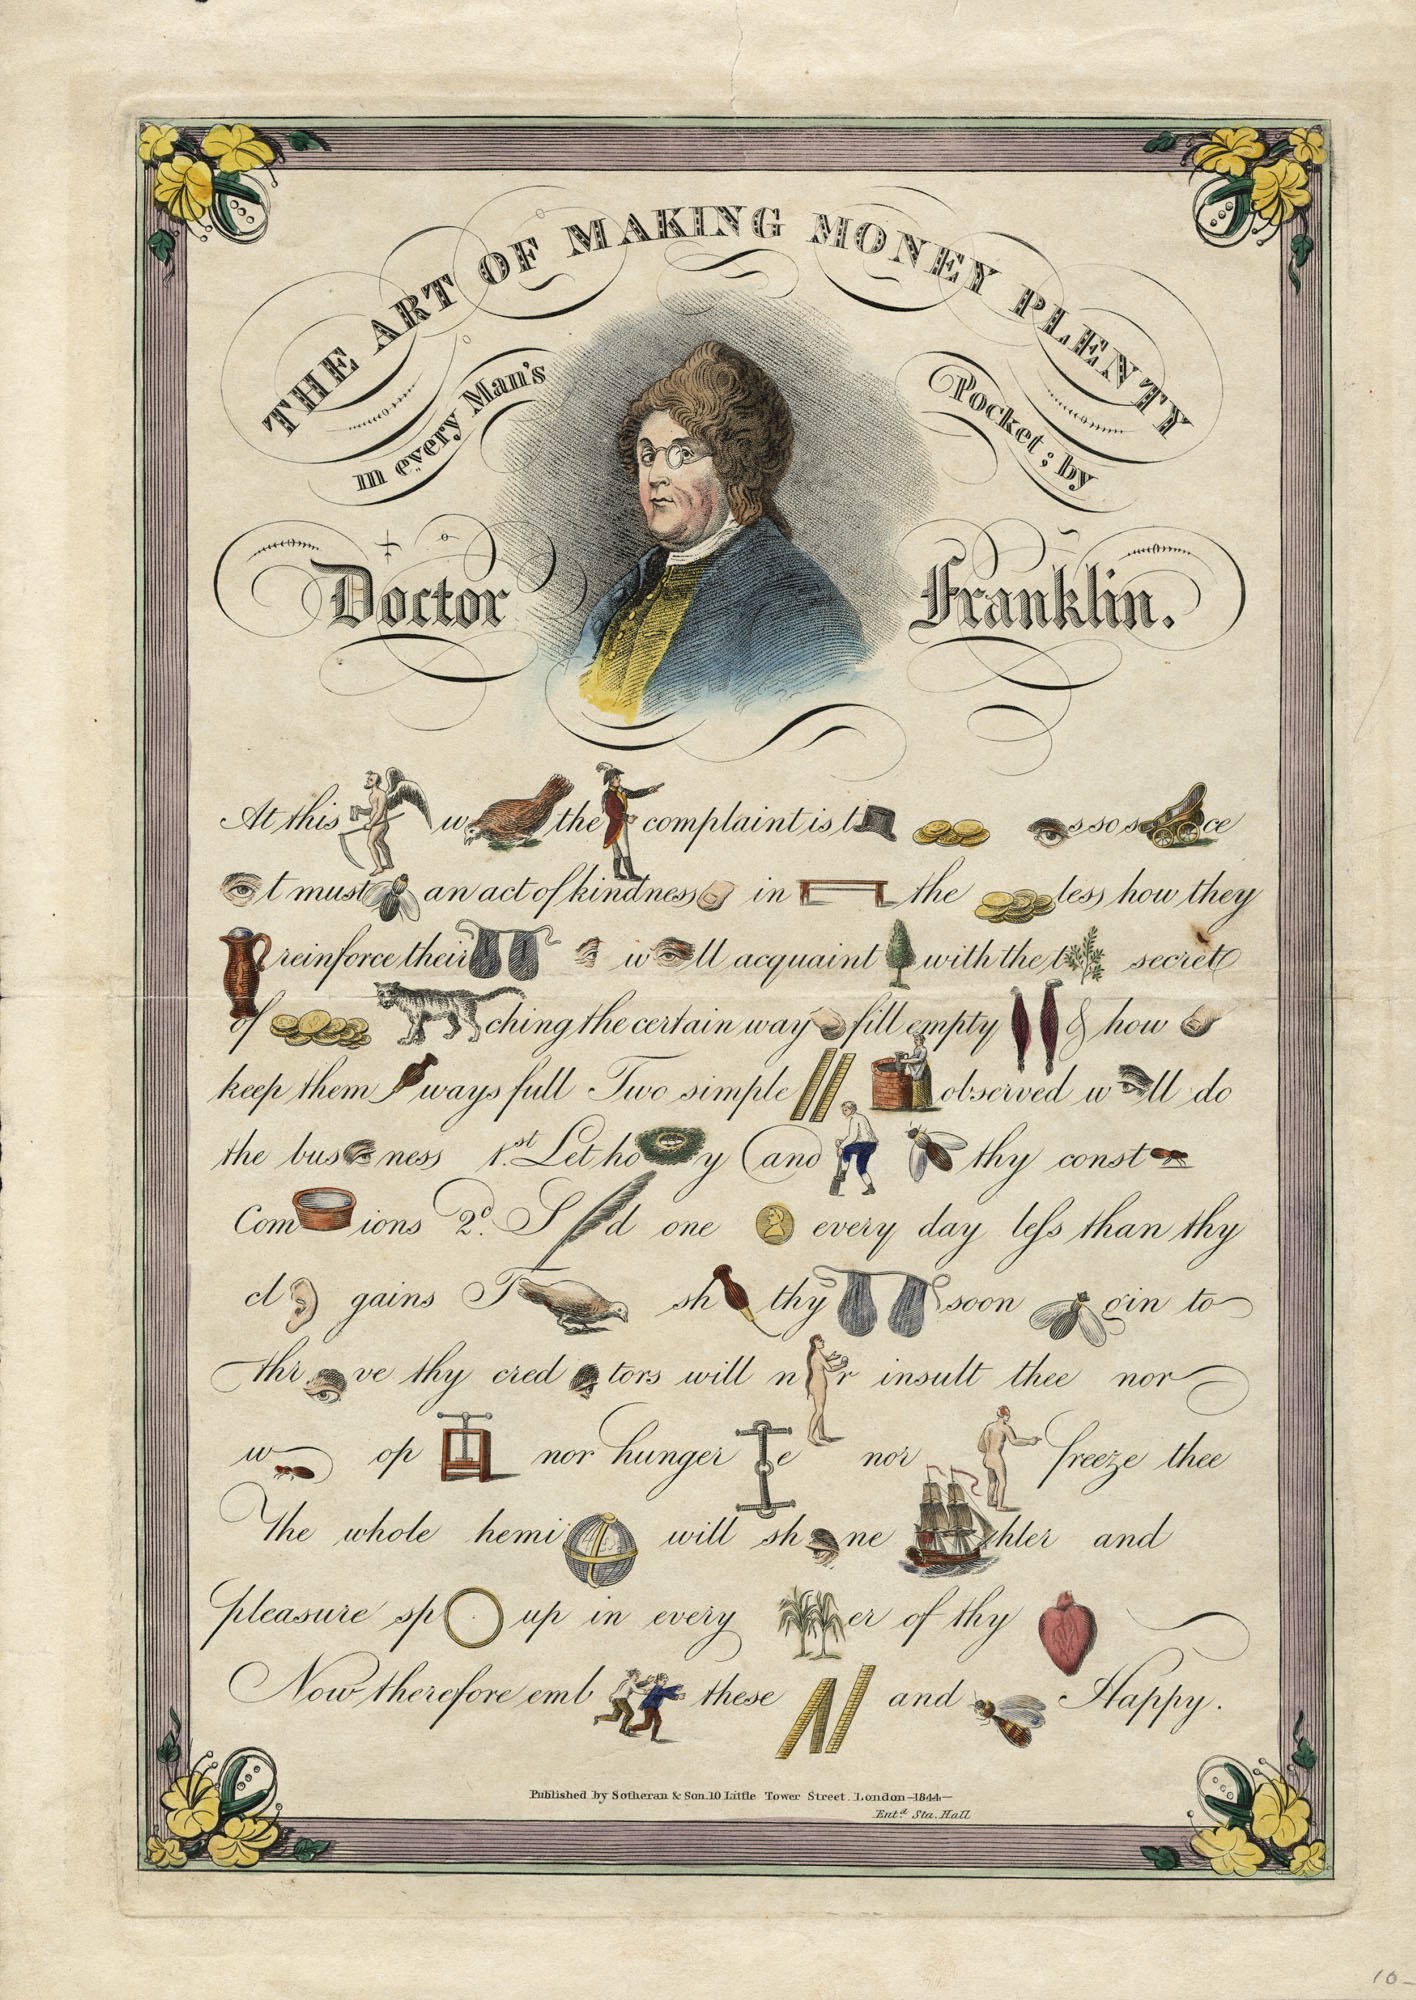 THE ART OF MAKING MONEY PLENTY
in every Man's Pocket; by
Doctor Franklin.
At this w the complaint is t s so s ce
t must an act of kindness in the less how they
reinforce their w ll acquaint with the t secret
of ching the certain way fill empty & how
keep them ways full Two simple observed w ll do
the bus ness 1.st Let ho y and thy const
Com ions 2.d S d one every day less than thy
cl gains T sh thy soon gin to
thr ve thy cred tors will n r insult thee nor
w op nor hunger e nor freeze thee
The whole hemi will sh ne hter and
pleasure sp up in every er of thy
Now therefore emb these and Happy.
Published by Sotheran & Son. 10 Little Tower Street. London—1844—
Ent.d Sta. Hall
10—